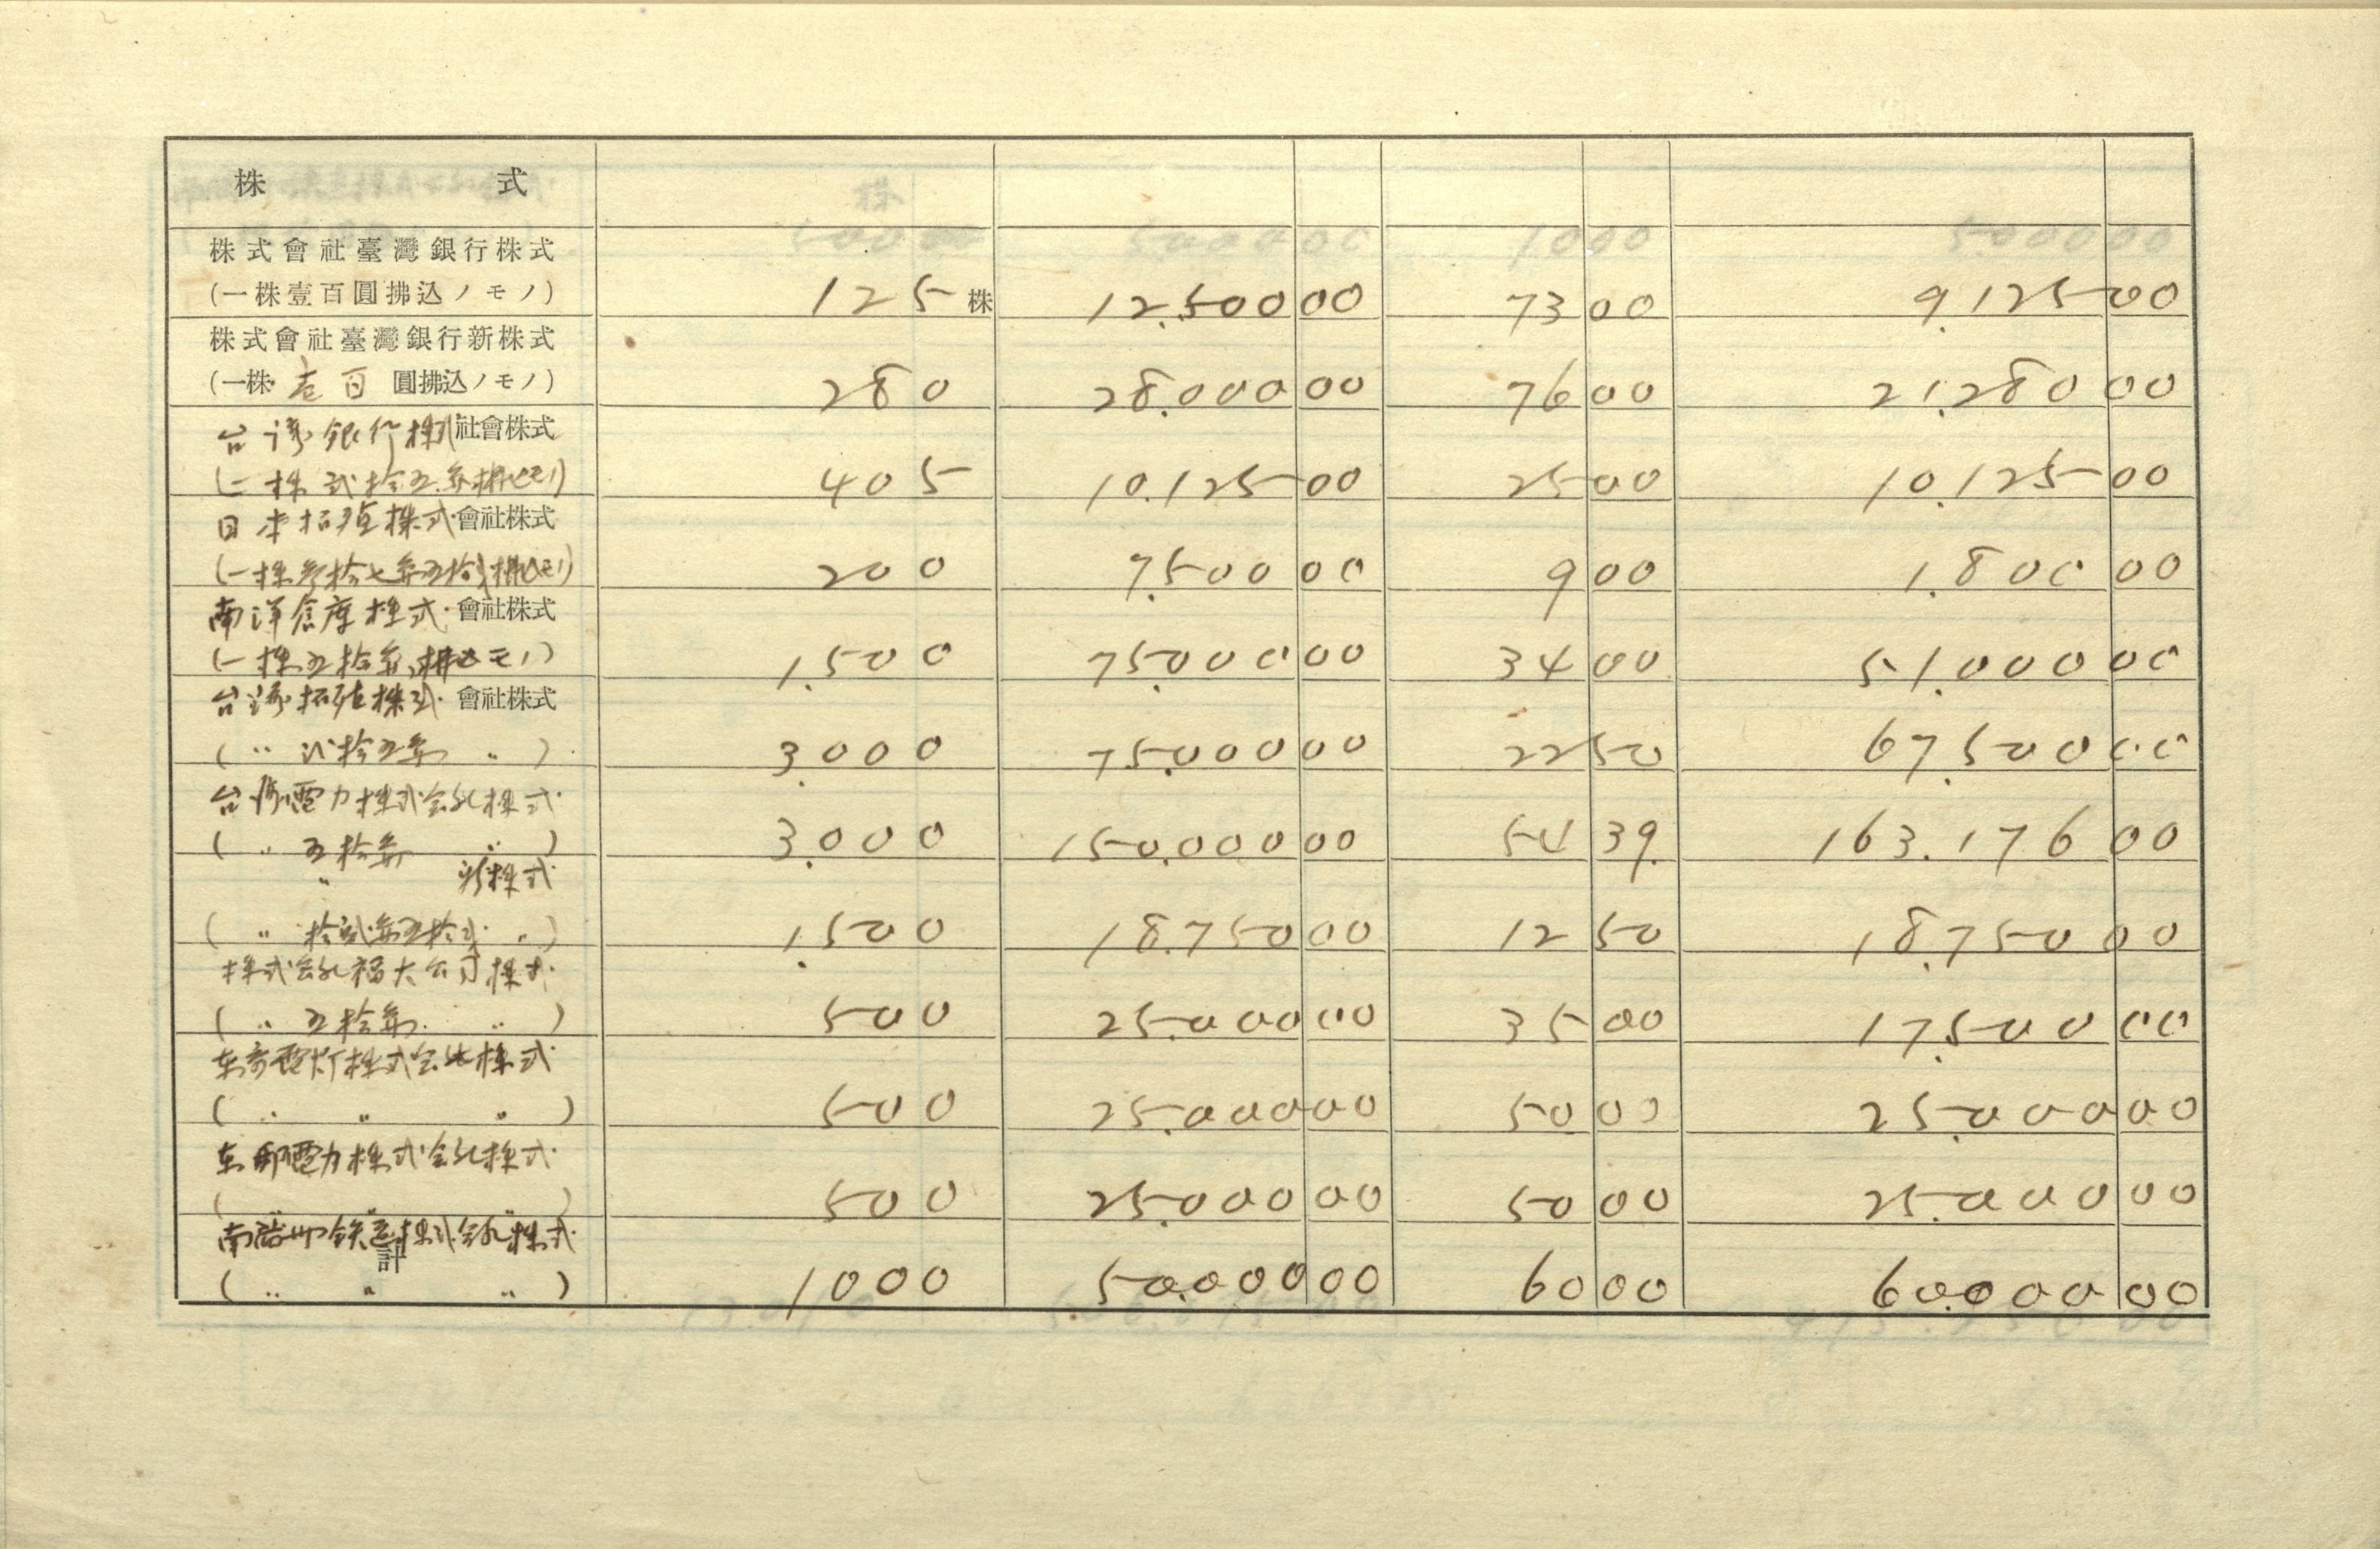 株式
株式會社臺灣銀行株式
(一株壹百圓拂込ノモノ) 125株 12.500 00 73 00 9.125 00
株式會社臺灣銀行新株式
(一株壱百圓拂込ノモノ) 280 28.000 00 76 00 21.280 00
台湾銀行株式社會株式
(一株弐拾五円拂込モノ) 405 10.125 00 25 00 10.125 00
日本拓殖株式會社株式
(一株参拾七円五拾戋拂込モノ) 200 7.500 00 9 00 1.800 00
南洋倉庫株式會社株式
(一株五拾円拂込モノ) 1.500 75.000 00 34 00 51.000 00
台湾拓殖株式會社株式
(〃 弐拾五円 〃) 3.000 75.000 00 22 50 67.500 00
台湾電力株式会社株式
(〃 五拾円 〃) 3.000 150.000 00 54 39. 163.176 00
〃 新株式
(〃 拾弐円五拾戋 〃) 1.500 18.750 00 12 50 18.750 00
株式会社福大公司株式
(〃 五拾円 〃) 500 25.000 00 35 00 17.500 00
東台電灯株式会社株式
(〃 〃 〃) 500 25.000 00 50 00 25.000 00
東部電力株式会社株式
(〃 〃 〃) 500 25.000 00 50 00 25.000 00
鉄道株式会社株式
計
(〃 〃 〃) 1000 50.000 00 60 00 60.000 00